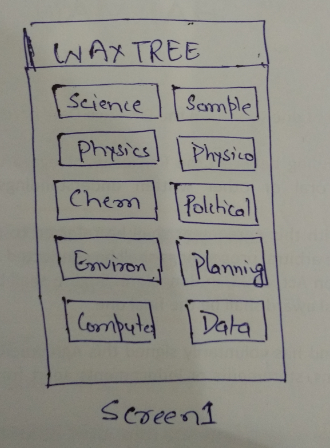 WAX TREE
Science Sample
Physics Physico
Chem Political
Environ. Planning
Compute Data
Screen1